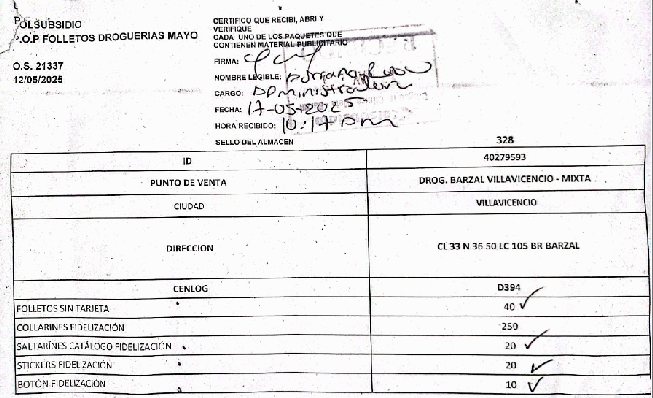 POLSUBSIDIO
P.O.P FOLLETOS DROGUERIAS MAYO
O.S. 21337
12/05/2025
CERTIFICO QUE RECIBI, ABRI Y
VERIFIQUE
CADA UNO DE LOS PAQUETES QUE
CONTIENEN MATERIAL PUBLICITARIO
FIRMA:
NOMBRE LEGIBLE:
CARGO: Administrador
FECHA: 17-05-2025
HORA RECIBICO: 10:17 am
SELLO DEL ALMACEN
328
ID 40279593
PUNTO DE VENTA DROG. BARZAL VILLAVICENCIO - MIXTA
CIUDAD VILLAVICENCIO
DIRECCION CL 33 N 36 50 LC 105 BR BARZAL
CENLOG D394
FOLLETOS SIN TARJETA 40
COLLARINES FIDELIZACIÓN 250
SALTARÍNES CATÁLOGO FIDELIZACIÓN 20
STICKERS FIDELIZACIÓN 20
BOTÓN FIDELIZACIÓN 10